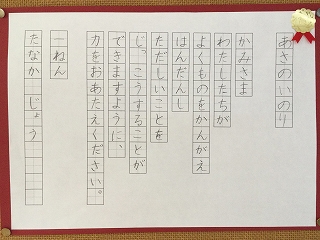 あさのいのり
かみさま
わたしたちが
よくものをかんがえ
はんだんし
ただしいことを
じっこうすることが
できますように、
力をおあたえください。
一ねん
たなか じょう